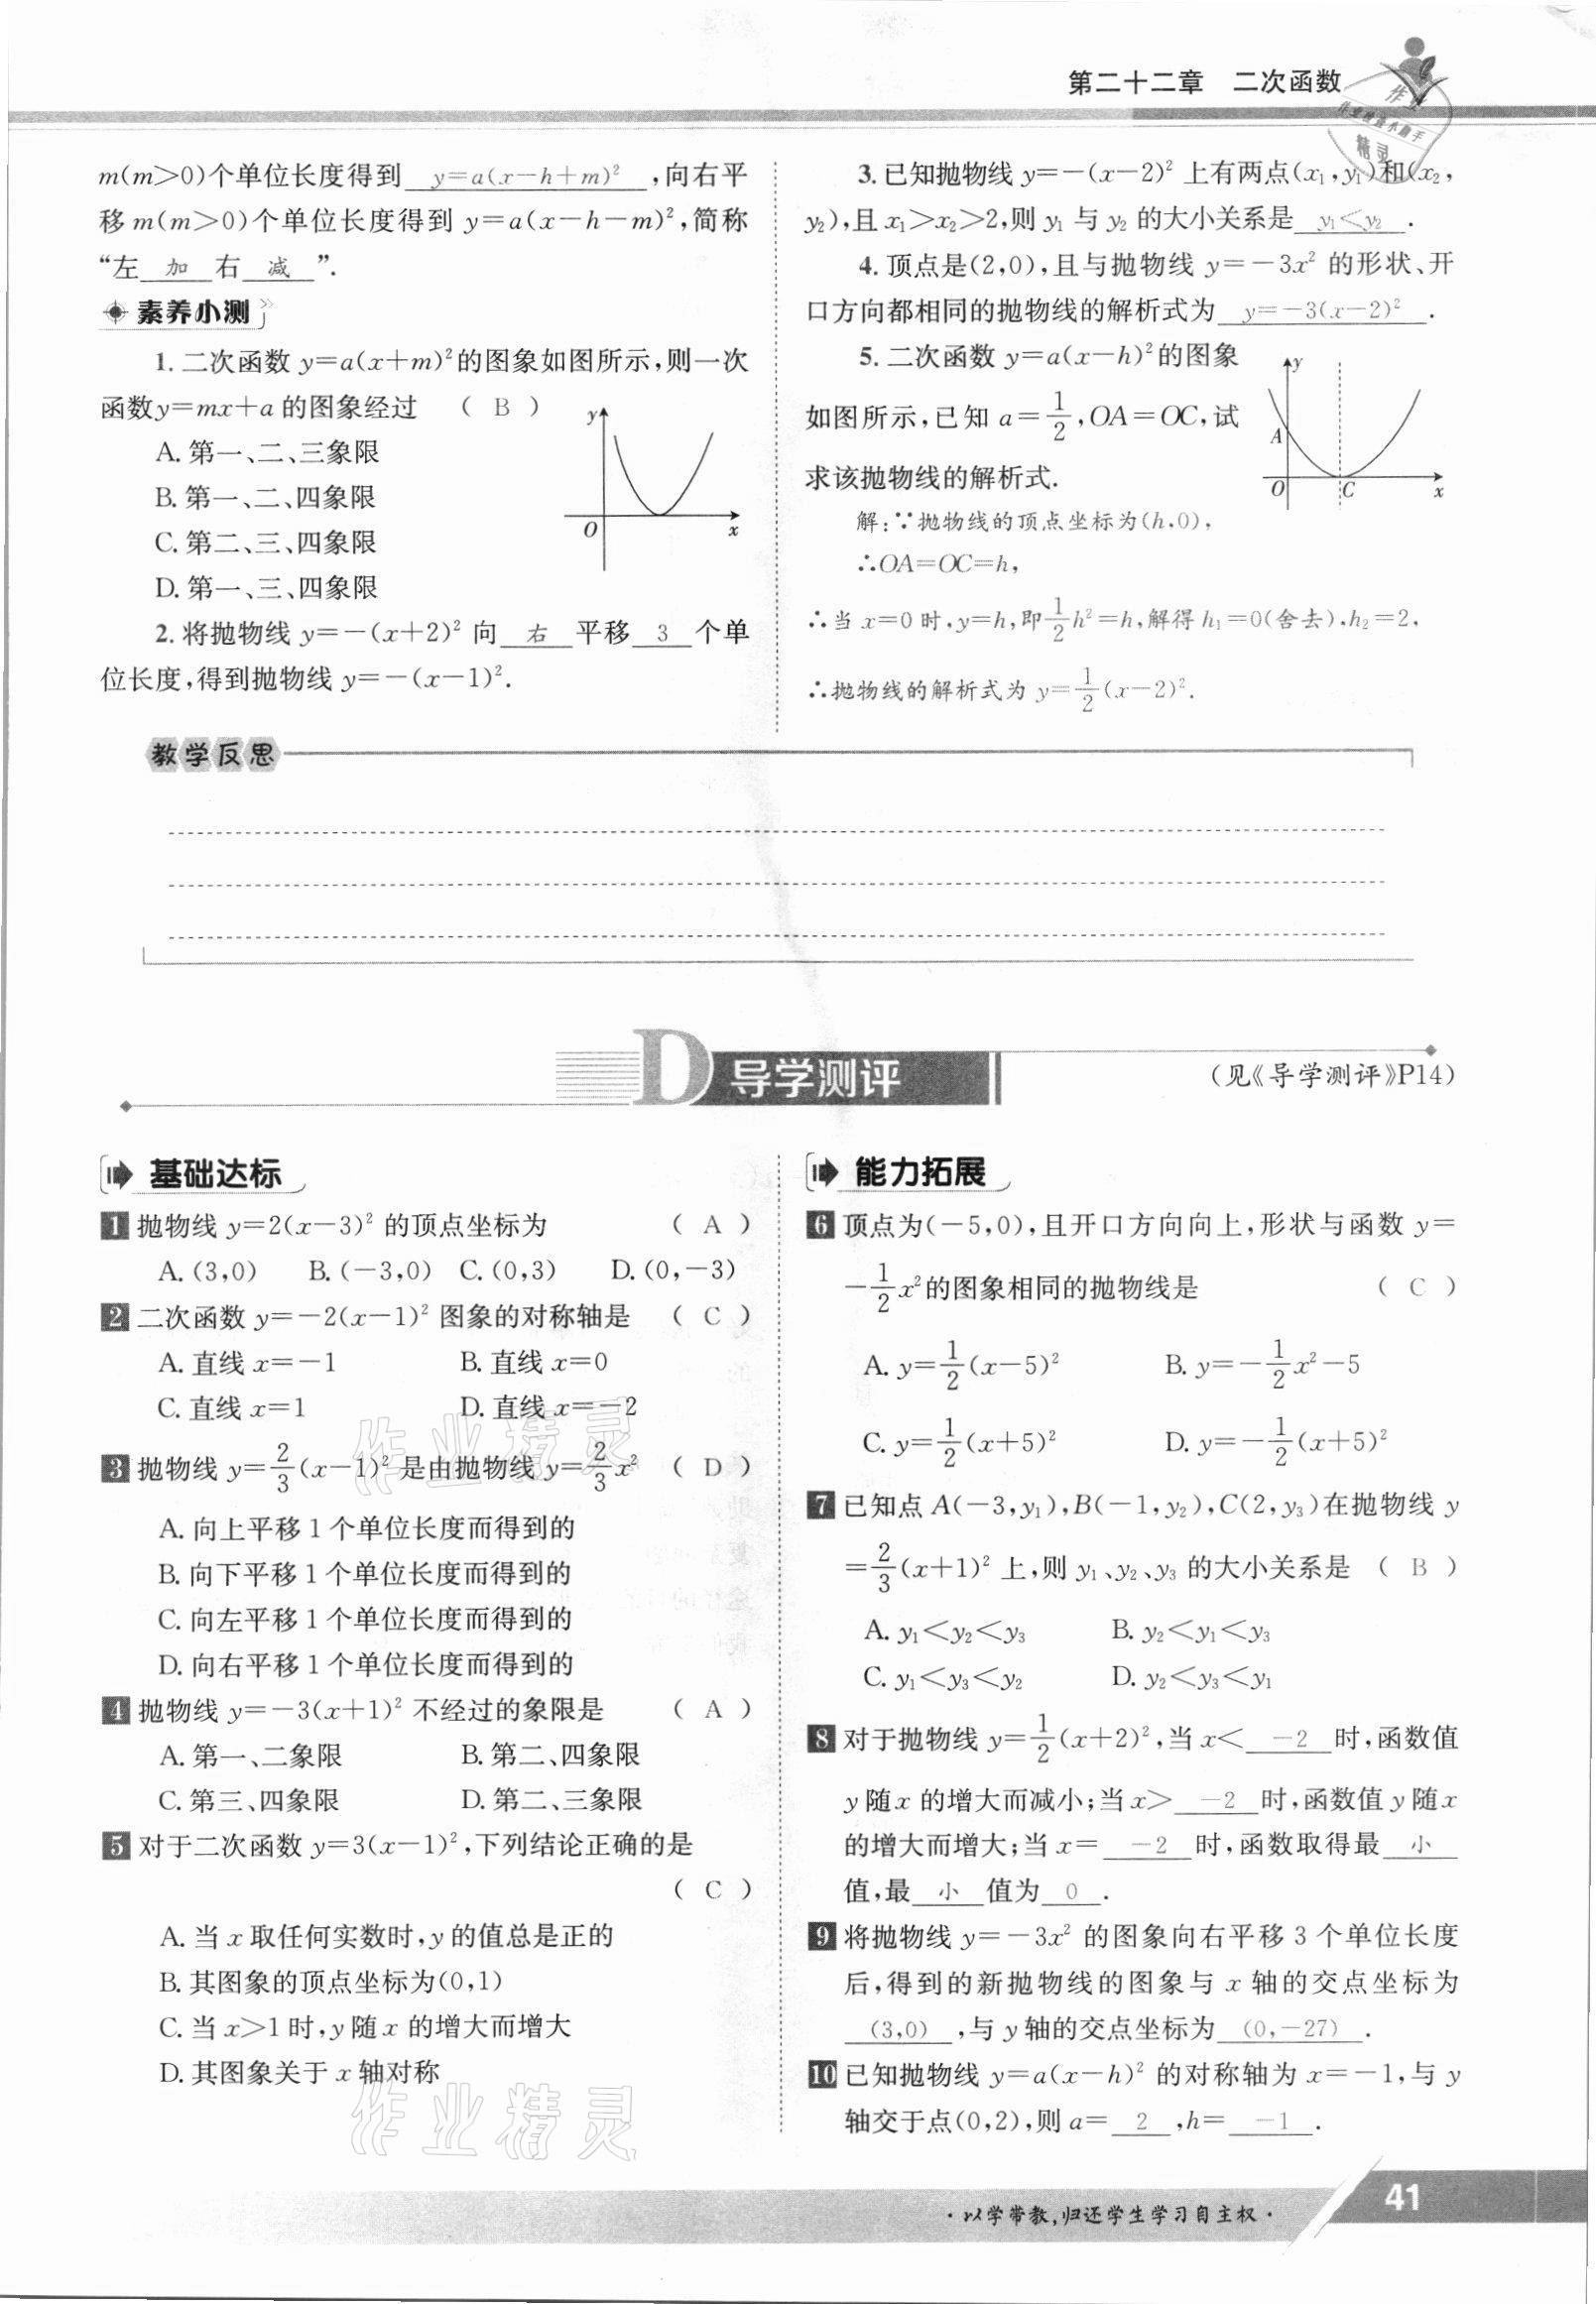 第二十二章 二次函数
作业
作业检查小助手
精灵
m(m>0)个单位长度得到 y=a(x-h+m)² ,向右平
移m(m>0)个单位长度得到 y=a(x-h-m)²,简称
“左 加 右 减 ”.
素养小测
1. 二次函数 y=a(x+m)²的图象如图所示,则一次
函数y=mx+a 的图象经过 ( B )
A. 第一、二、三象限
B. 第一、二、四象限
C. 第二、三、四象限
D. 第一、三、四象限
y
O
x
2. 将抛物线 y=-(x+2)² 向 右 平移 3 个单
位长度,得到抛物线 y=-(x-1)².
3. 已知抛物线 y=-(x-2)² 上有两点(x₁,y₁)和(x₂,
y₂),且 x₁>x₂>2,则 y₁ 与 y₂ 的大小关系是 y₁<y₂ .
4. 顶点是(2,0),且与抛物线 y=-3x² 的形状、开
口方向都相同的抛物线的解析式为 y=-3(x-2)² .
5. 二次函数 y=a(x-h)²的图象
如图所示,已知 a=1/2,OA=OC,试
求该抛物线的解析式.
y
A
O
C
x
解:∵抛物线的顶点坐标为(h,0),
∴OA=OC=h,
∴当 x=0 时,y=h,即1/2h²=h,解得 h₁=0(舍去),h₂=2,
∴抛物线的解析式为 y=1/2(x-2)².
教学反思
D 导学测评
(见《导学测评》P14)
基础达标
1 抛物线 y=2(x-3)² 的顶点坐标为 ( A )
A. (3,0) B. (-3,0) C. (0,3) D. (0,-3)
2 二次函数 y=-2(x-1)² 图象的对称轴是 ( C )
A. 直线 x=-1 B. 直线 x=0
C. 直线 x=1 D. 直线 x=-2
3 抛物线 y=2/3(x-1)² 是由抛物线 y=2/3x² ( D )
A. 向上平移 1 个单位长度而得到的
B. 向下平移 1 个单位长度而得到的
C. 向左平移 1 个单位长度而得到的
D. 向右平移 1 个单位长度而得到的
4 抛物线 y=-3(x+1)² 不经过的象限是 ( A )
A. 第一、二象限 B. 第二、四象限
C. 第三、四象限 D. 第二、三象限
5 对于二次函数 y=3(x-1)²,下列结论正确的是
( C )
A. 当 x 取任何实数时,y 的值总是正的
B. 其图象的顶点坐标为(0,1)
C. 当 x>1 时,y 随 x 的增大而增大
D. 其图象关于 x 轴对称
作业精灵
作业精灵
能力拓展
6 顶点为(-5,0),且开口方向向上,形状与函数 y=
-1/2x²的图象相同的抛物线是 ( C )
A. y=1/2(x-5)² B. y=-1/2x²-5
C. y=1/2(x+5)² D. y=-1/2(x+5)²
7 已知点 A(-3,y₁),B(-1,y₂),C(2,y₃)在抛物线 y
=2/3(x+1)² 上,则 y₁、y₂、y₃ 的大小关系是 ( B )
A. y₁<y₂<y₃ B. y₂<y₁<y₃
C. y₁<y₃<y₂ D. y₂<y₃<y₁
8 对于抛物线 y=1/2(x+2)²,当 x< -2 时,函数值
y 随 x 的增大而减小;当 x> -2 时,函数值 y 随 x
的增大而增大;当 x= -2 时,函数取得最 小
值,最 小 值为 0 .
9 将抛物线 y=-3x² 的图象向右平移 3 个单位长度
后,得到的新抛物线的图象与 x 轴的交点坐标为
(3,0) ,与 y 轴的交点坐标为 (0,-27) .
10 已知抛物线 y=a(x-h)² 的对称轴为 x=-1,与 y
轴交于点(0,2),则 a= 2 ,h= -1 .
·以学带教,归还学生学习自主权·
41